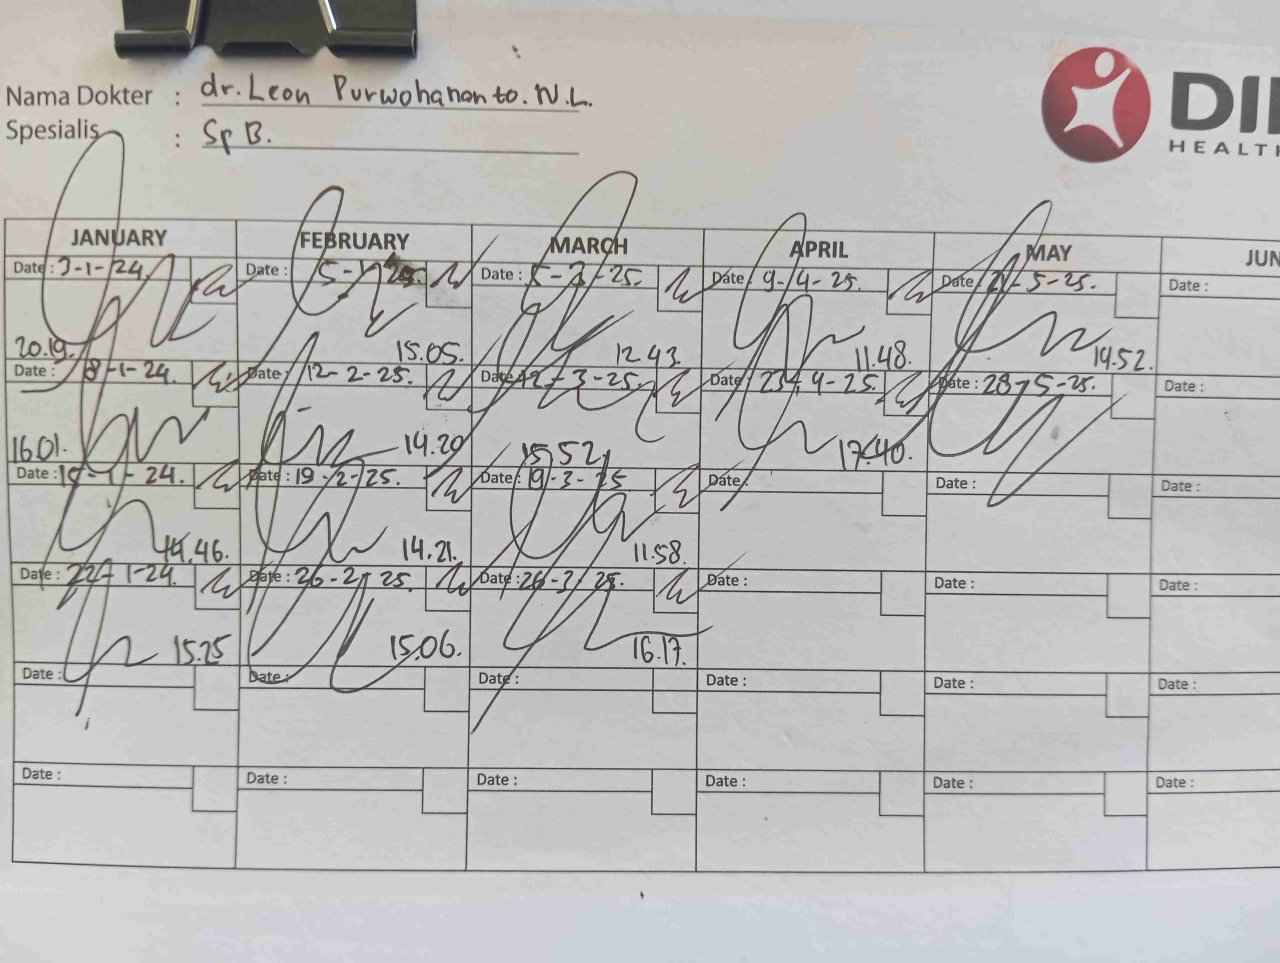 Nama Dokter : dr. Leon Purwohananto. N.L.
Spesialis : Sp B.
DI
HEALTH
JANUARY FEBRUARY MARCH APRIL MAY JUN
Date : 3-1-24. Date : 5- Date : 5- -25. Date : 9-4-25. Date : -5-25. Date :
20.19. 15.05. 12.43. 11.48. 14.52.
Date : 8-1-24. Date : 12-2-25. Date : 12-3-25. Date : 23-4-25. Date : 28-5-25. Date :
16.01. 14.20 15.52 17.40.
Date : 15-1-24. Date : 19-2-25. Date : 19-3-25 Date : Date : Date :
14.46. 14.21. 11.58.
Date : 22-1-24. Date : 26-2-25. Date : 26-3-25. Date : Date : Date :
15.25 15.06. 16.17.
Date : Date : Date : Date : Date : Date :
Date : Date : Date : Date : Date : Date :